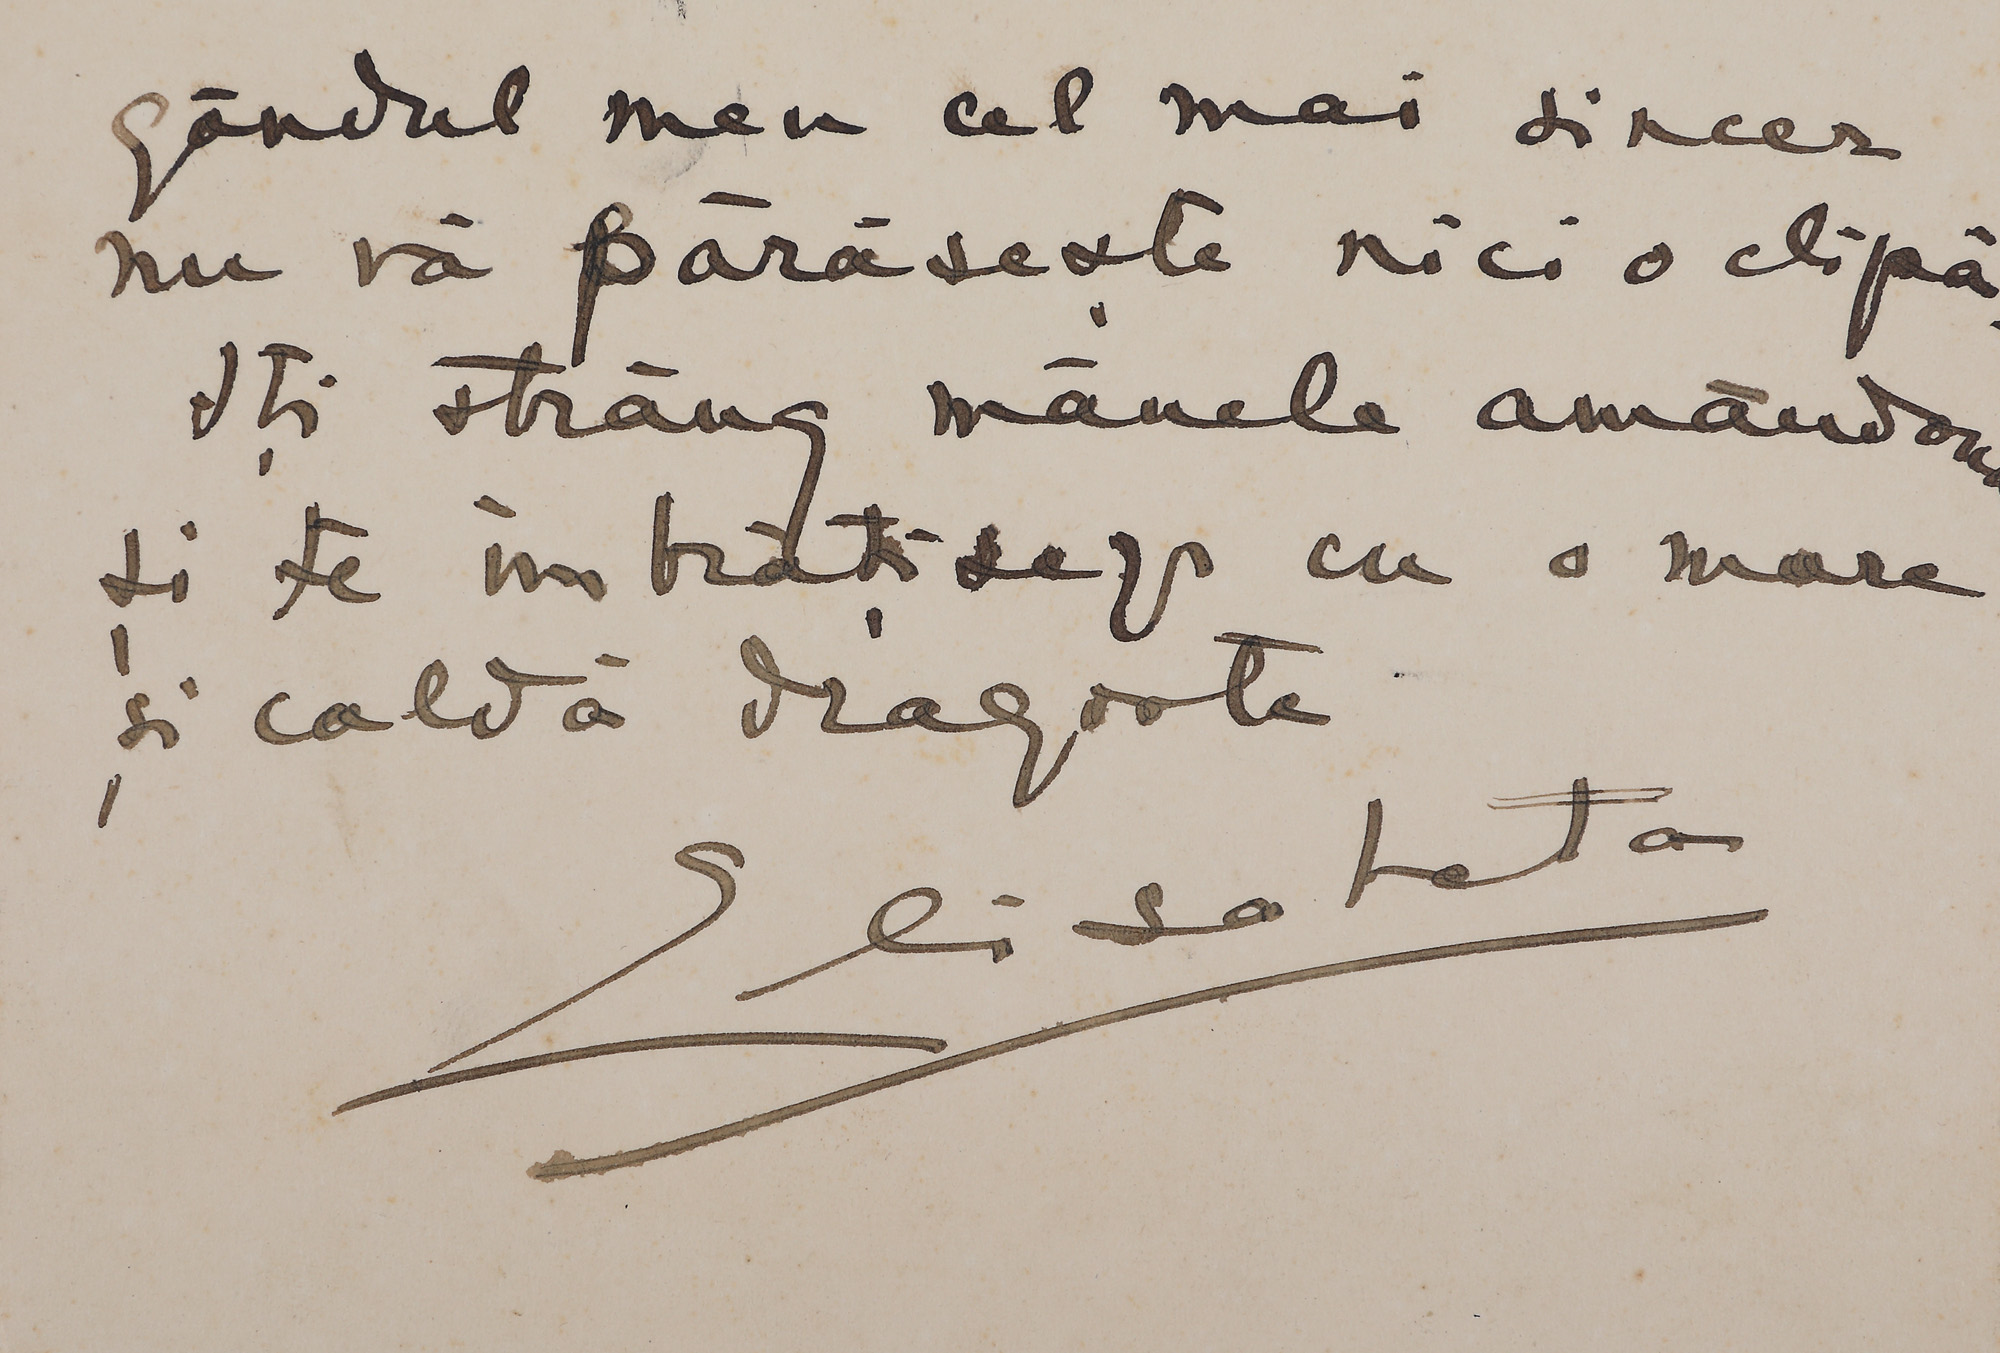 gândul meu cel mai sincer
nu vă părăsește nici o clipă,
Îți strâng mânele amândouă
și te îmbrățișez cu o mare
și caldă dragoste
Elisabeta